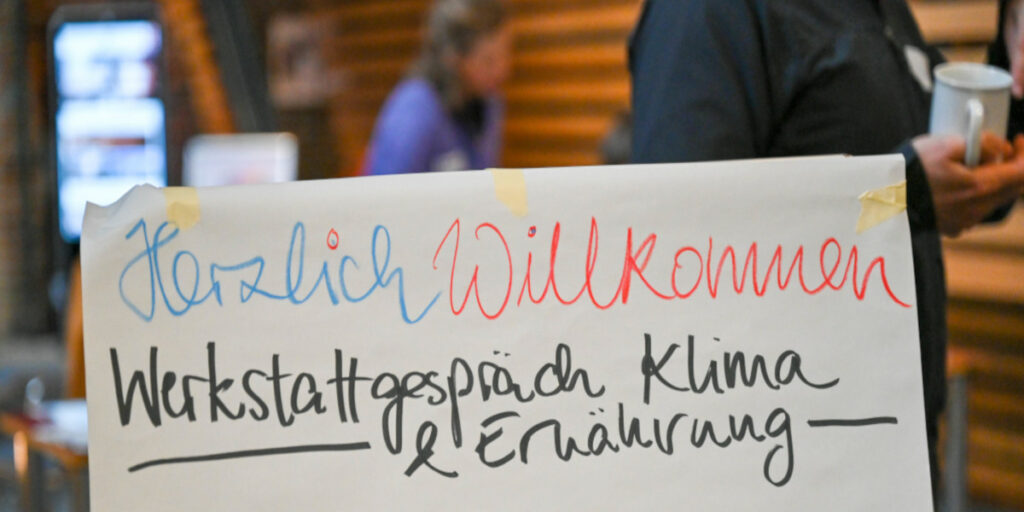 Herzlich Willkommen
Werkstattgespräch Klima
& Ernährung